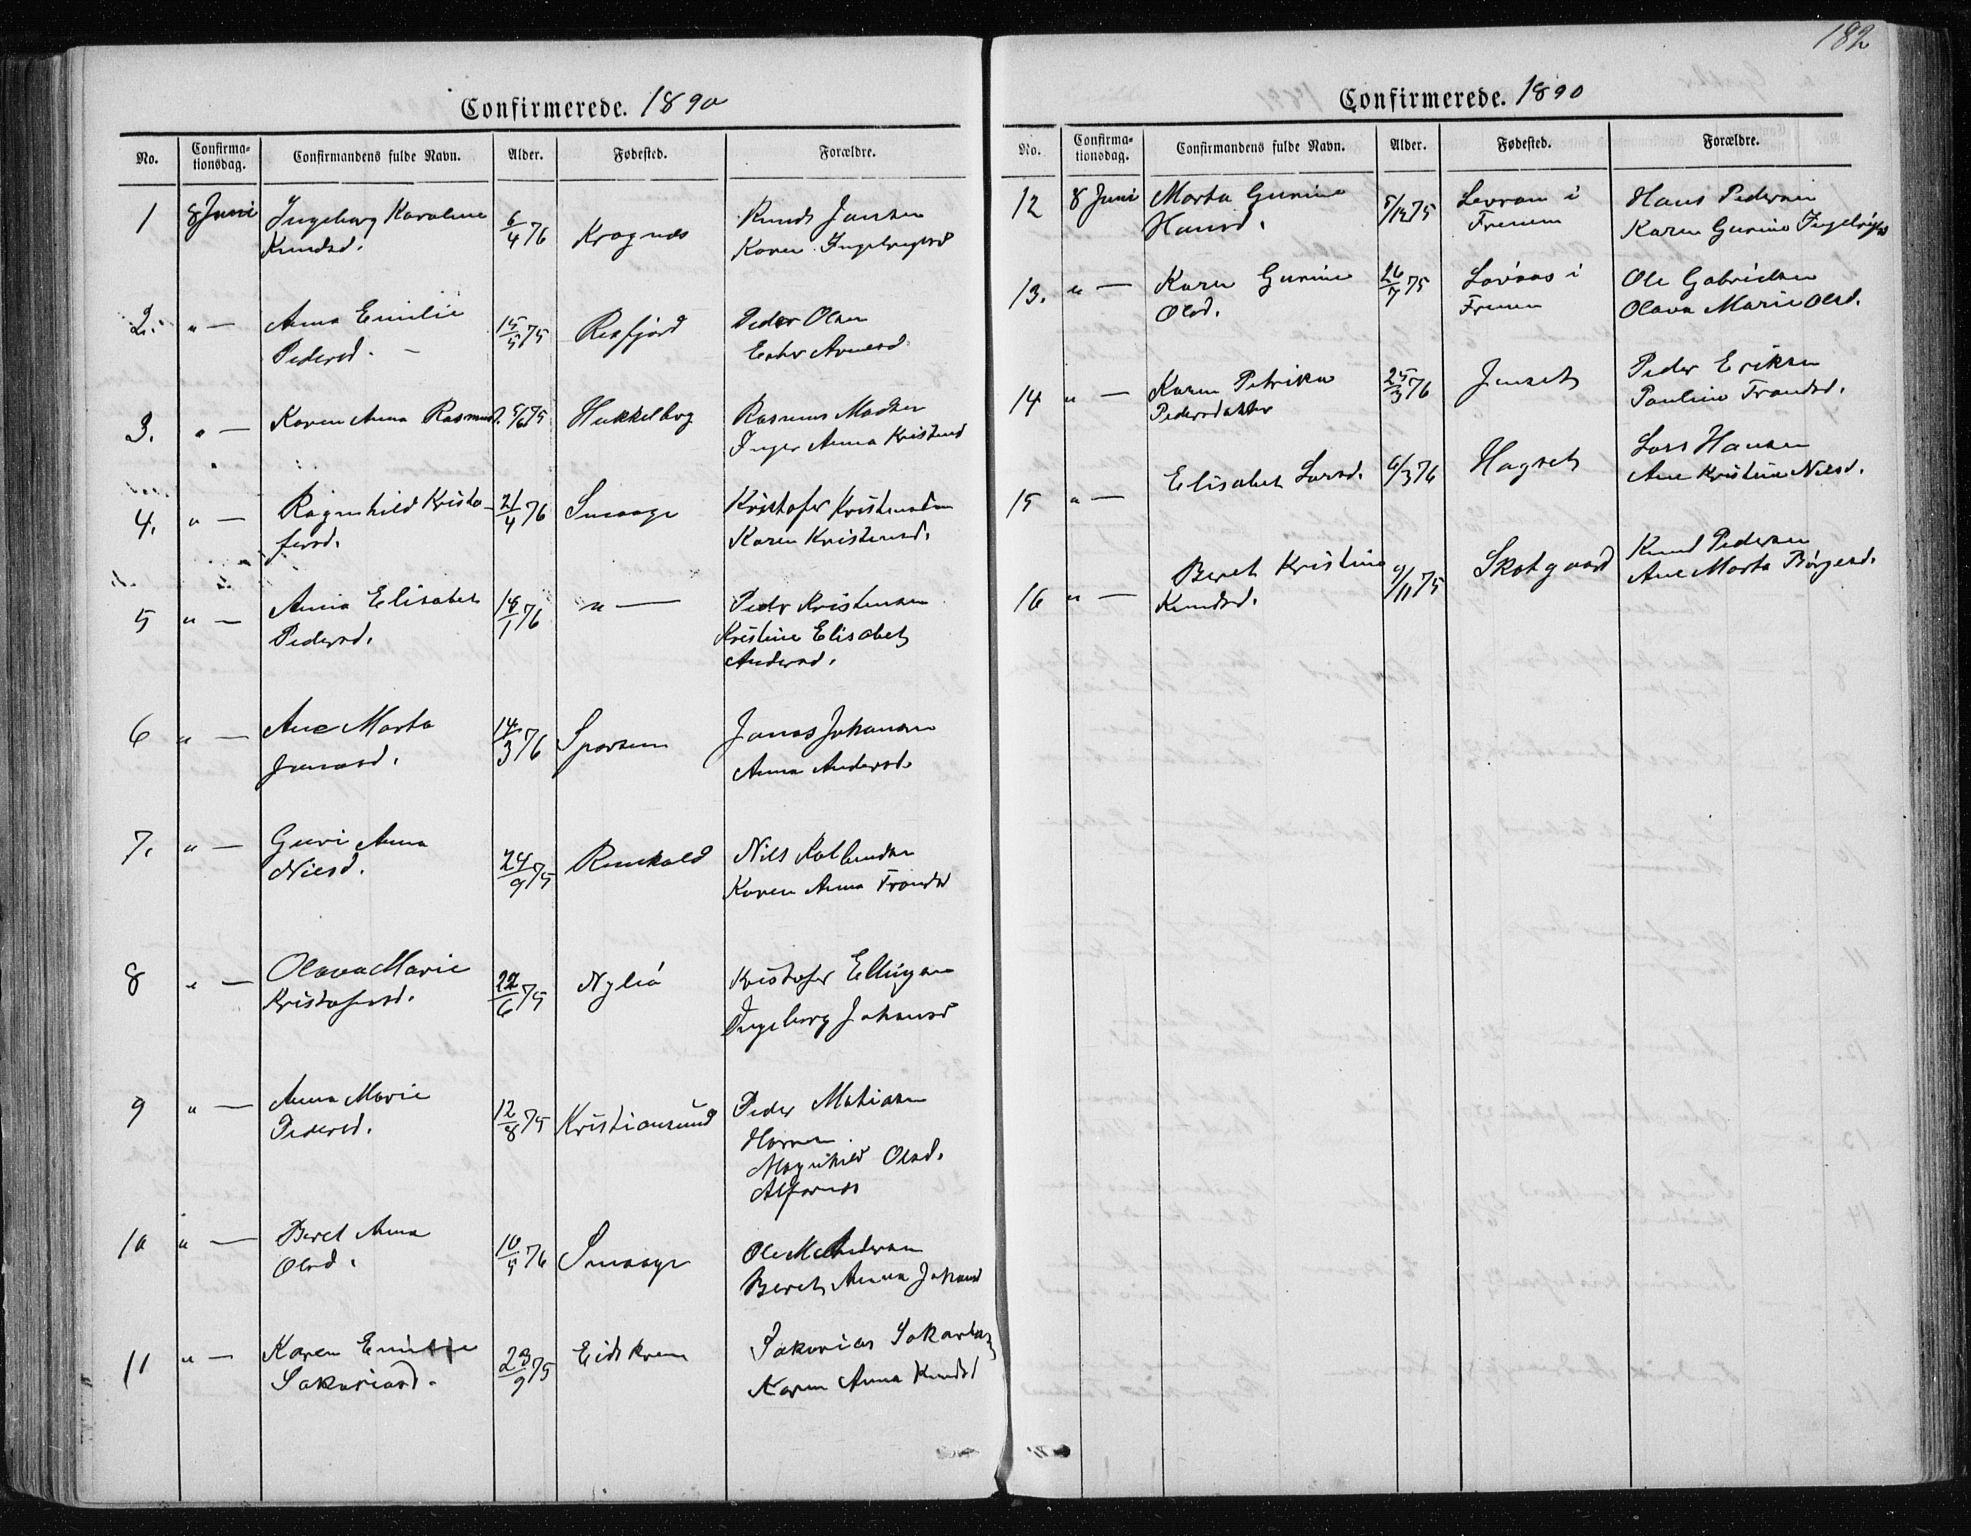 182
Confirmerede. 1890
No. Confirmationsdag. Confirmandens fulde Navn. Alder. Fødested. Forældre.
1 8 Juni Ingeborg Karoline 6/4 76 Kragnes Knud Jansen
Knudsd. Karen Ingebrigtsd
2. " — Anna Emilie 15/5 75 Resfjord Peder Olsen
Pedersd. Ester Arnesd.
3. " — Karen Anna Rasmusd. 5/6 75 Hukkelberg Rasmus Madsen
Inger Anna Kristensd
4. " — Ragnhild Kristo- 21/4 76 Smaage Kristofer Kristensen
fersd. Karen Kristensd.
5 " — Anna Elisabet 18/1 76 " — Peder Kristensen
Pedersd. Kristine Elisabet
Andersd.
6 " — Ane Marta 14/3 76 Sporsem Jonas Johansen
Jonasd. Anna Andersd.
7. " — Guri Anna 24/9 75 Nils
Nilsd. Karen Anna Trondsd
8 " — Olava Marie 22/6 75 Nylió Kristofer Ellingsen
Kristofersd. Ingeborg Johansd
9 " — Anna Marie 12/8 75 Kristiansund Peder Matiasen
Pedersd.
Magnhild Olsd.
Alfarnes
10 " — Beret Anna 10/5 76 Smaage Ole M Andersen
Olsd. Beret Anna Johansd
11 " — Karen Emilie 23/9 75 Eidskrem Sakarias Sakariass
Sakariasd. Karen Anna Knudsd
Confirmerede. 1890
No. Confirmationsdag. Confirmandens fulde Navn. Alder. Fødested. Forældre.
12 8 Juni Marta Gurine 5/12 75 i Hans Pedersen
Hansd. Frenen Karen Gurine Ingebrigtsd
13. " — Karen Gurine 26/7 75 Lovaas i Ole Gabrielsen
Olsd. Frenen Olava Marie Olsd.
14 " — Karen Petrika 25/3 76 Jenset Peder Eriksen
Pedersdatter Pauline Trondsd.
15 " — Elisabet Larsd. 6/3 76 Hagset Lars Hansen
Ane Kristine Nilsd.
16 " — Beret Kristine 9/11 75 Skotgaard Knud Pedersen
Knudsd. Ane Marta Børgesd.